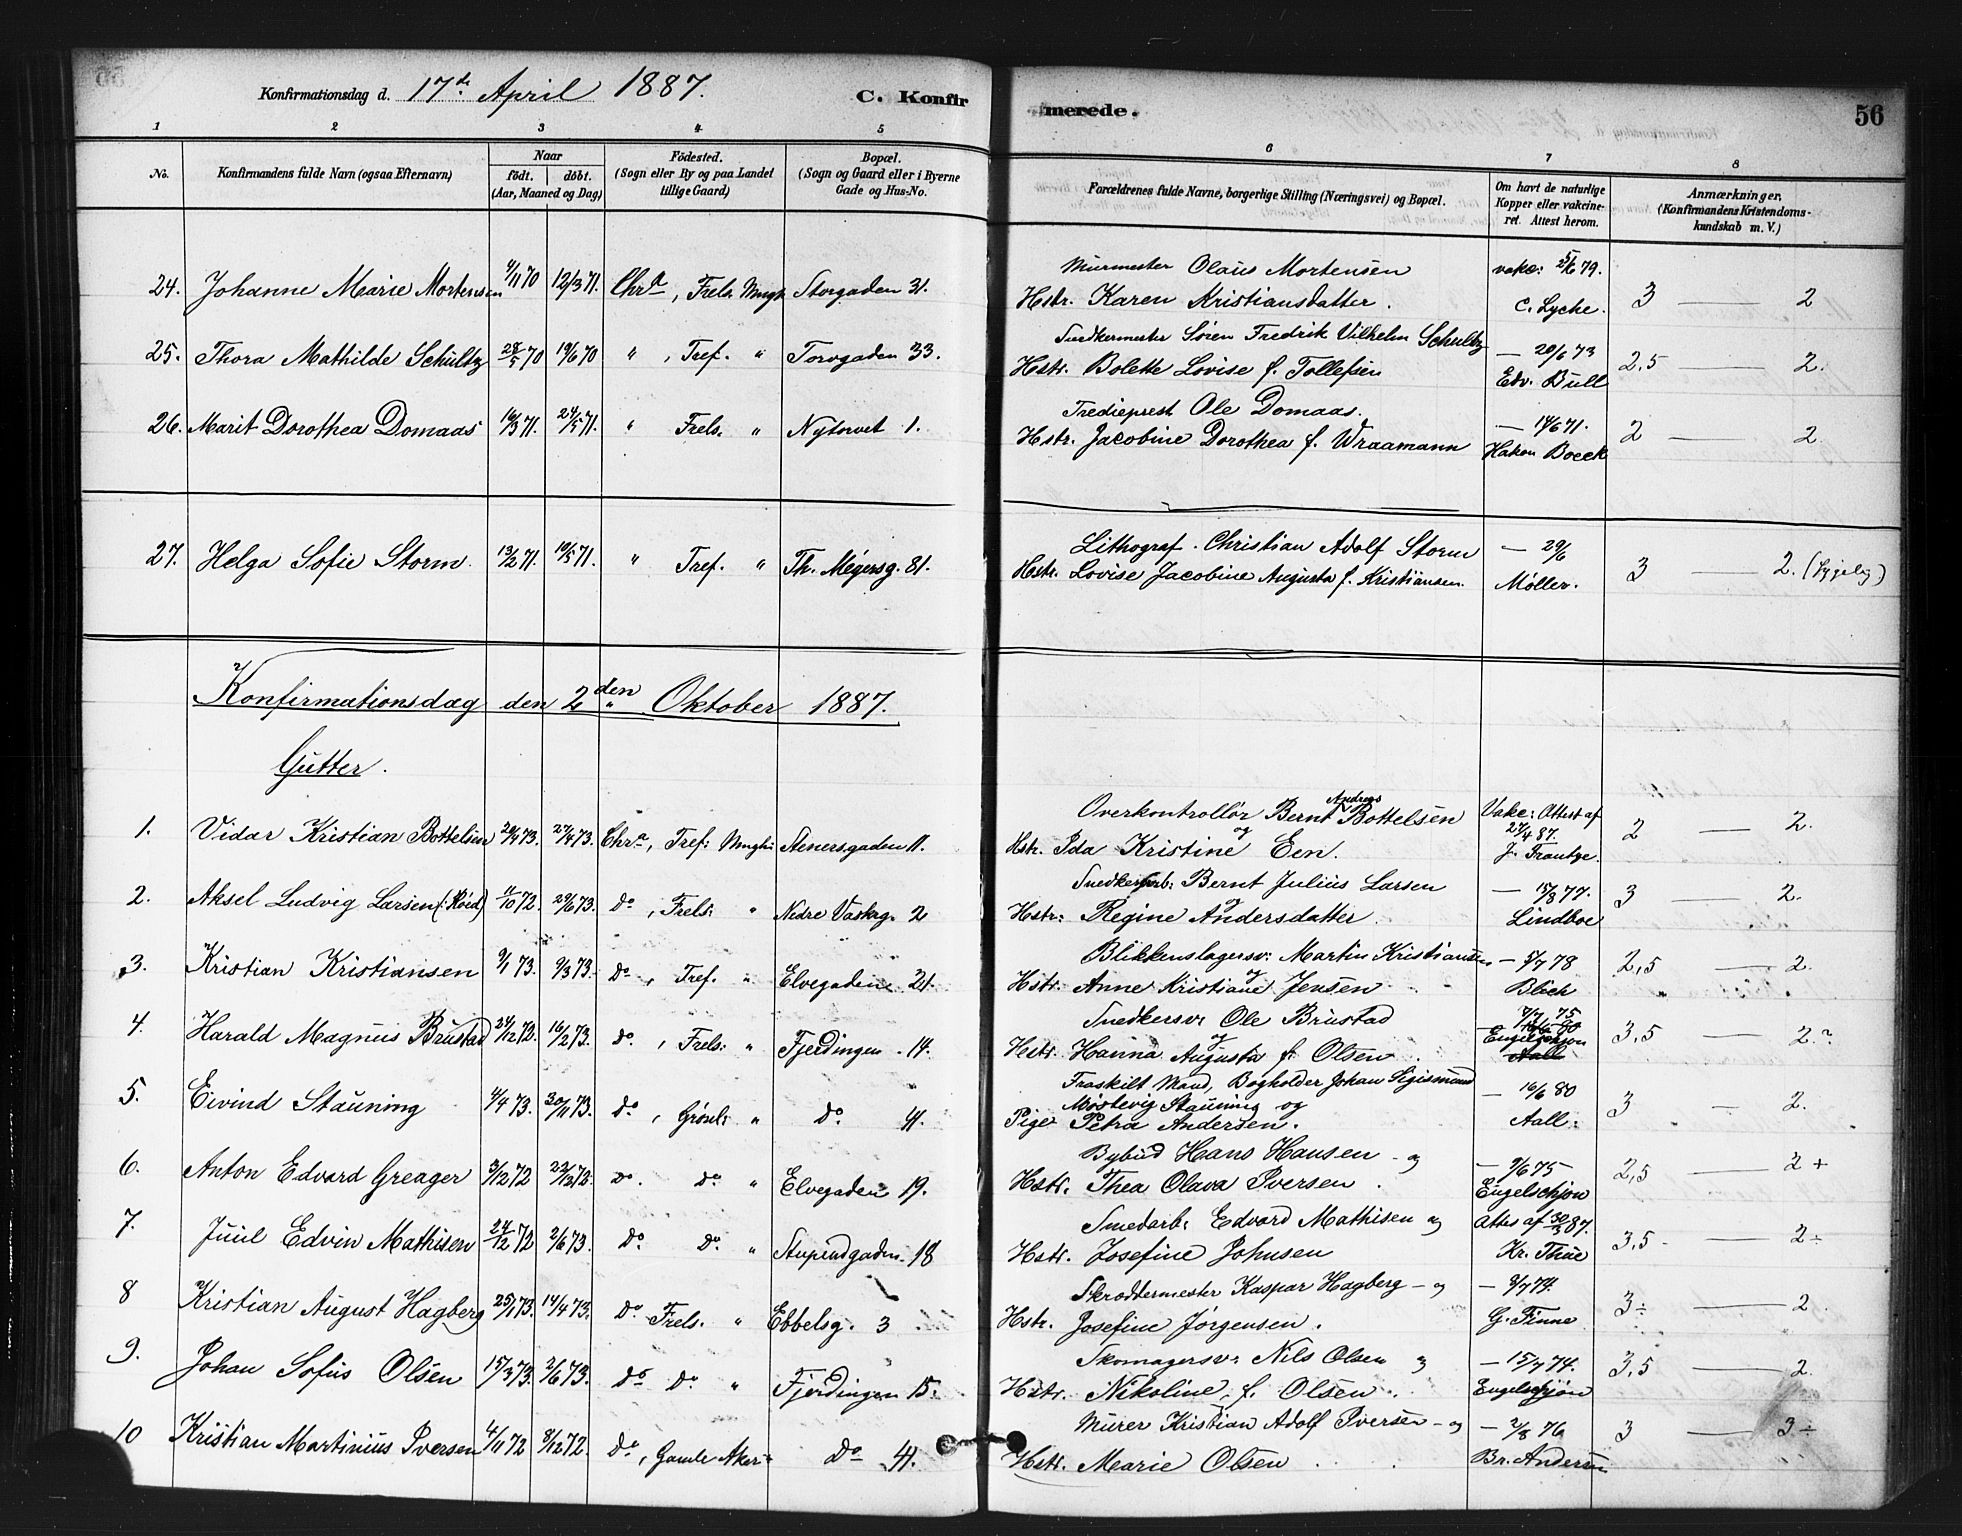 Konfirmationsdag d. 17de April 1887. C. Konfirmerede. 56
1 2 3 4 5 6 7 8
No. Konfirmandens fulde Navn (ogsaa Efternavn) Naar födt. döbt. (Aar, Maaned og Dag) Födested. (Sogn eller By og paa Landet tillige Gaard) Bopæl. (Sogn og Gaard eller i Byerne Gade og Hus-No. Forældrenes fulde Navne, borgerlige Stilling (Næringsvei) og Bopæl. Om havt de naturlige Kopper eller vakcineret. Attest herom. Anmærkninger. (Konfirmandens Kristendomskundskab m. V.)
Murmester Olaus Mortensen vakc: 25/6 79.
24. Johanne Marie Mortensen 4/11 70 12/3 71. Chra, Frels. Mngh. Storgaden 31. Hstr. Karen Kristiansdatter. C. Lyche. 3 — 2
Snedkermester Sören Fredrik Vilhelm Schultz — 20/6 73
25. Thora Mathilde Schultz 28/5 70 19/6 70 " , Tref. " Torvgaden 33. Hstr. Bolette Lovise f. Tollefsen Edv. Bull 2,5 — 2.
Tredieprest Ole Domaas. — 14/6 71.
26. Marit Dorothea Domaas 16/3 71. 24/5 71. " Frels. " Nytorvet 1. Hstr. Jacobine Dorothea f. Wraamann Hakon Boeck 2 — 2.
Lithograf. Christian Adolf Storm — 29/6
27. Helga Sofie Storm. 13/2 71. 10/5 71. " Tref. " Th. Meyersg. 81. Hstr. Lovise Jacobine Augusta f. Kristiansen. Møller. 3 — 2. (sygelig)
Konfirmationsdag den 2den Oktober 1887.
Gutter.
Overkontrollör Bernt Andreas Bottelsen og Vakc: Attest af 27/4 87.
1. Vidar Kristian Bottelsen 20/1 73. 27/4 73. Chra, Tref: Mngh: Stenersgaden 11. Hstr. Ida Kristine Een. J. Frantze. 2 — 2.
Snedkerarb: Bernt Julius Larsen og — 15/8 77.
2. Aksel Ludvig Larsen (: Röid) 11/10 72. 29/6 73. Do , Frels: " Nedre Vaskeg. 2 Hstr: Regine Andersdatter. Lindboe 3 — 2.
Blikkenslagersv: Martin Kristiansen og — 5/7 78
3. Kristian Kristiansen 9/1 73. 9/3 73. Do , Tref. " Elvegaden 21. Hstr. Anne Kristiane Jensen Blich 2,5 — 2.
Snedkersv: Ole Brustad og 7/7 75
4. Harald Magnus Brustad 24/12 72. 16/2 73. Do , Frels: " Fjerdingen 14. Hstr. Hanna Augusta f. Olsen. Engelschjon Aall 3,5 — 2.?
Fraskilt Mand, Bogholder Johan Sigismund — 16/6 80
5. Eivind Stauning 4/4 73. 30/11 73. Do , Grönl: " Do. 41. Møstevig Stauning og
Pige Petra Andersen. Aall. 3 — 2.
Bybud Hans Hansen - og — 9/6 75
6. Anton Edvard Greager 3/12 72 22/12 72. Do. Do. " Elvegaden 19. Hstr. Thea Olava Iversen. Engelschjon 2,5 — 2 +
Smedarb: Edvard Mathisen og Attes af 30/3 87.
7. Juul Edvin Mathisen 24/12 72 2/6 73. Do. Do. " Stupendgaden 18 Hstr. Josefine Johnsen Kr. Thue 3,5 — 2 ÷
Skræddermester Kaspar Hagberg - og — 8/7 74.
8 Kristian August Hagberg 25/1 73. 14/4 73. Do Frels. " Ebbelsg. 3 Hstr. Josefine Jørgensen. G. Finne 3 ÷ — 2
Skomagersv: Nils Olsen og — 15/7 74.
9. Johan Sofus Olsen 15/3 73. 2/6 73. Do Do. " Fjerdingen 15. Hstr. Nikoline, f. Olsen. Engelschjøn 3,5 — 2.
Murer Kristian Adolf Iversen - og — 2/8 76
10 Kristian Martinius Iversen 4/11 72 8/12 72. Do , Gamle Aker: Do 41. Hstr. Marie Olsen Br. Andersen 3 — 3 ÷